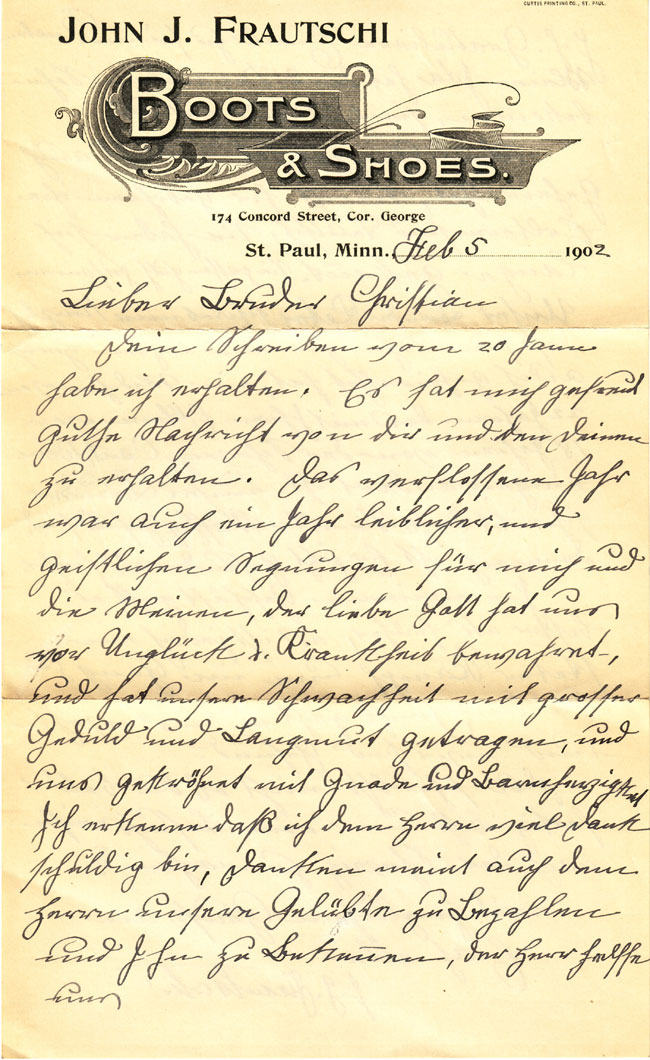 CURTIS PRINTING CO., ST. PAUL.
JOHN J. FRAUTSCHI
BOOTS
& SHOES.
174 Concord Street, Cor. George
St. Paul, Minn., Feb 5 1902
Lieber Bruder Christian
Dein Schreiben vom 20 Jann
habe ich erhalten. Es hat mich gefreut
guthe Nachricht von dir und den Deinen
zu erhalten. Das verflossene Jahr
war auch ein Jahr leiblicher, und
geistlichen Segnungen für mich und
die Meinen, der liebe Gott hat uns
vor Unglück & Krankheit bewahret,
und hat unsere Schwachheit mit grosser
Geduld und Langmut getragen, und
uns gekröhnet mit Gnade und Barmherzigkeit
Ich erkenne daß ich dem Herrn viel Dank
schuldig bin, Danken meint auch dem
Herrn unsere Gelübte zu Bezahlen
und Ihn zu Bekennen, der Herr helffe
uns